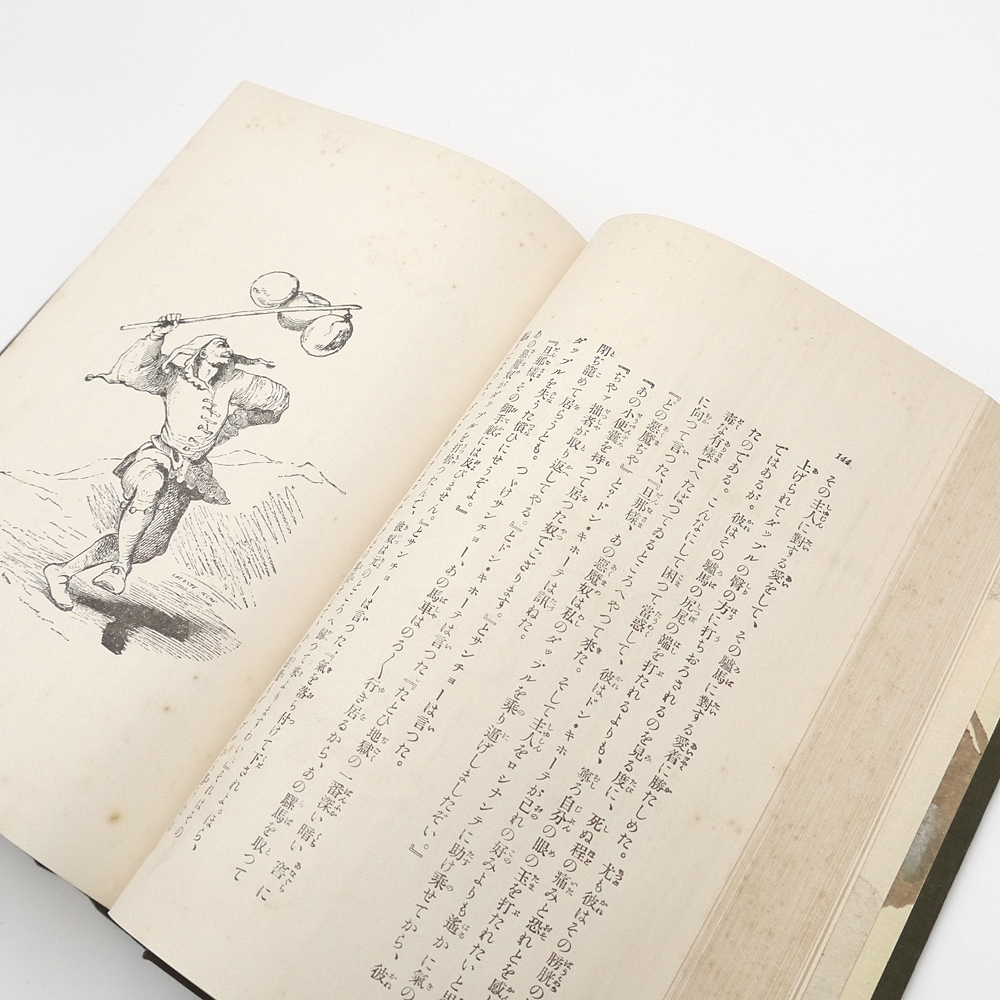 144
その主人に對する愛をして、その驢馬に對する愛着に勝たしめた。尤も彼はその膀胱の
上げられてダップルの臀の方に打ちおろされるのを見る度に、死ぬ程の痛みと恐れとを感
ではあるが。彼はその驢馬の尻尾の端を打たれるよりも、寧ろ自分の眼の玉を打たれたいと思
たのである。こんなにして困つて當惑して、彼はドン・キホーテが己れの好みよりも遙かに氣の
毒な有樣でへたばつてゐるところへやつて來た。そして主人をロシナンテに助け乘せてから、彼
に向つて言つた、『旦那樣、あの惡魔奴は私のダップルを乘り逃げしましただい。』
『どの惡魔ぢや』とドン・キホーテは訊ねた。
『あの小便嚢を持つて居つた奴でござります。』とサンチョーは言つた。
『ぢやァ拙者が取り返してやる。』とドン・キホーテは言つた『たとひ地獄の一番深い暗い窖に
閉ぢ籠めて居らうとも。つゞけサンチョー、あの馬車はのろ〳〵行き居るから、あの騾馬を取つて
ダップルを失うた償ひにせうぞよ。』
『旦那樣、その御手數には及びません。』とサンチョーは言つた、『氣を落ち付けて下されよ。ほら、